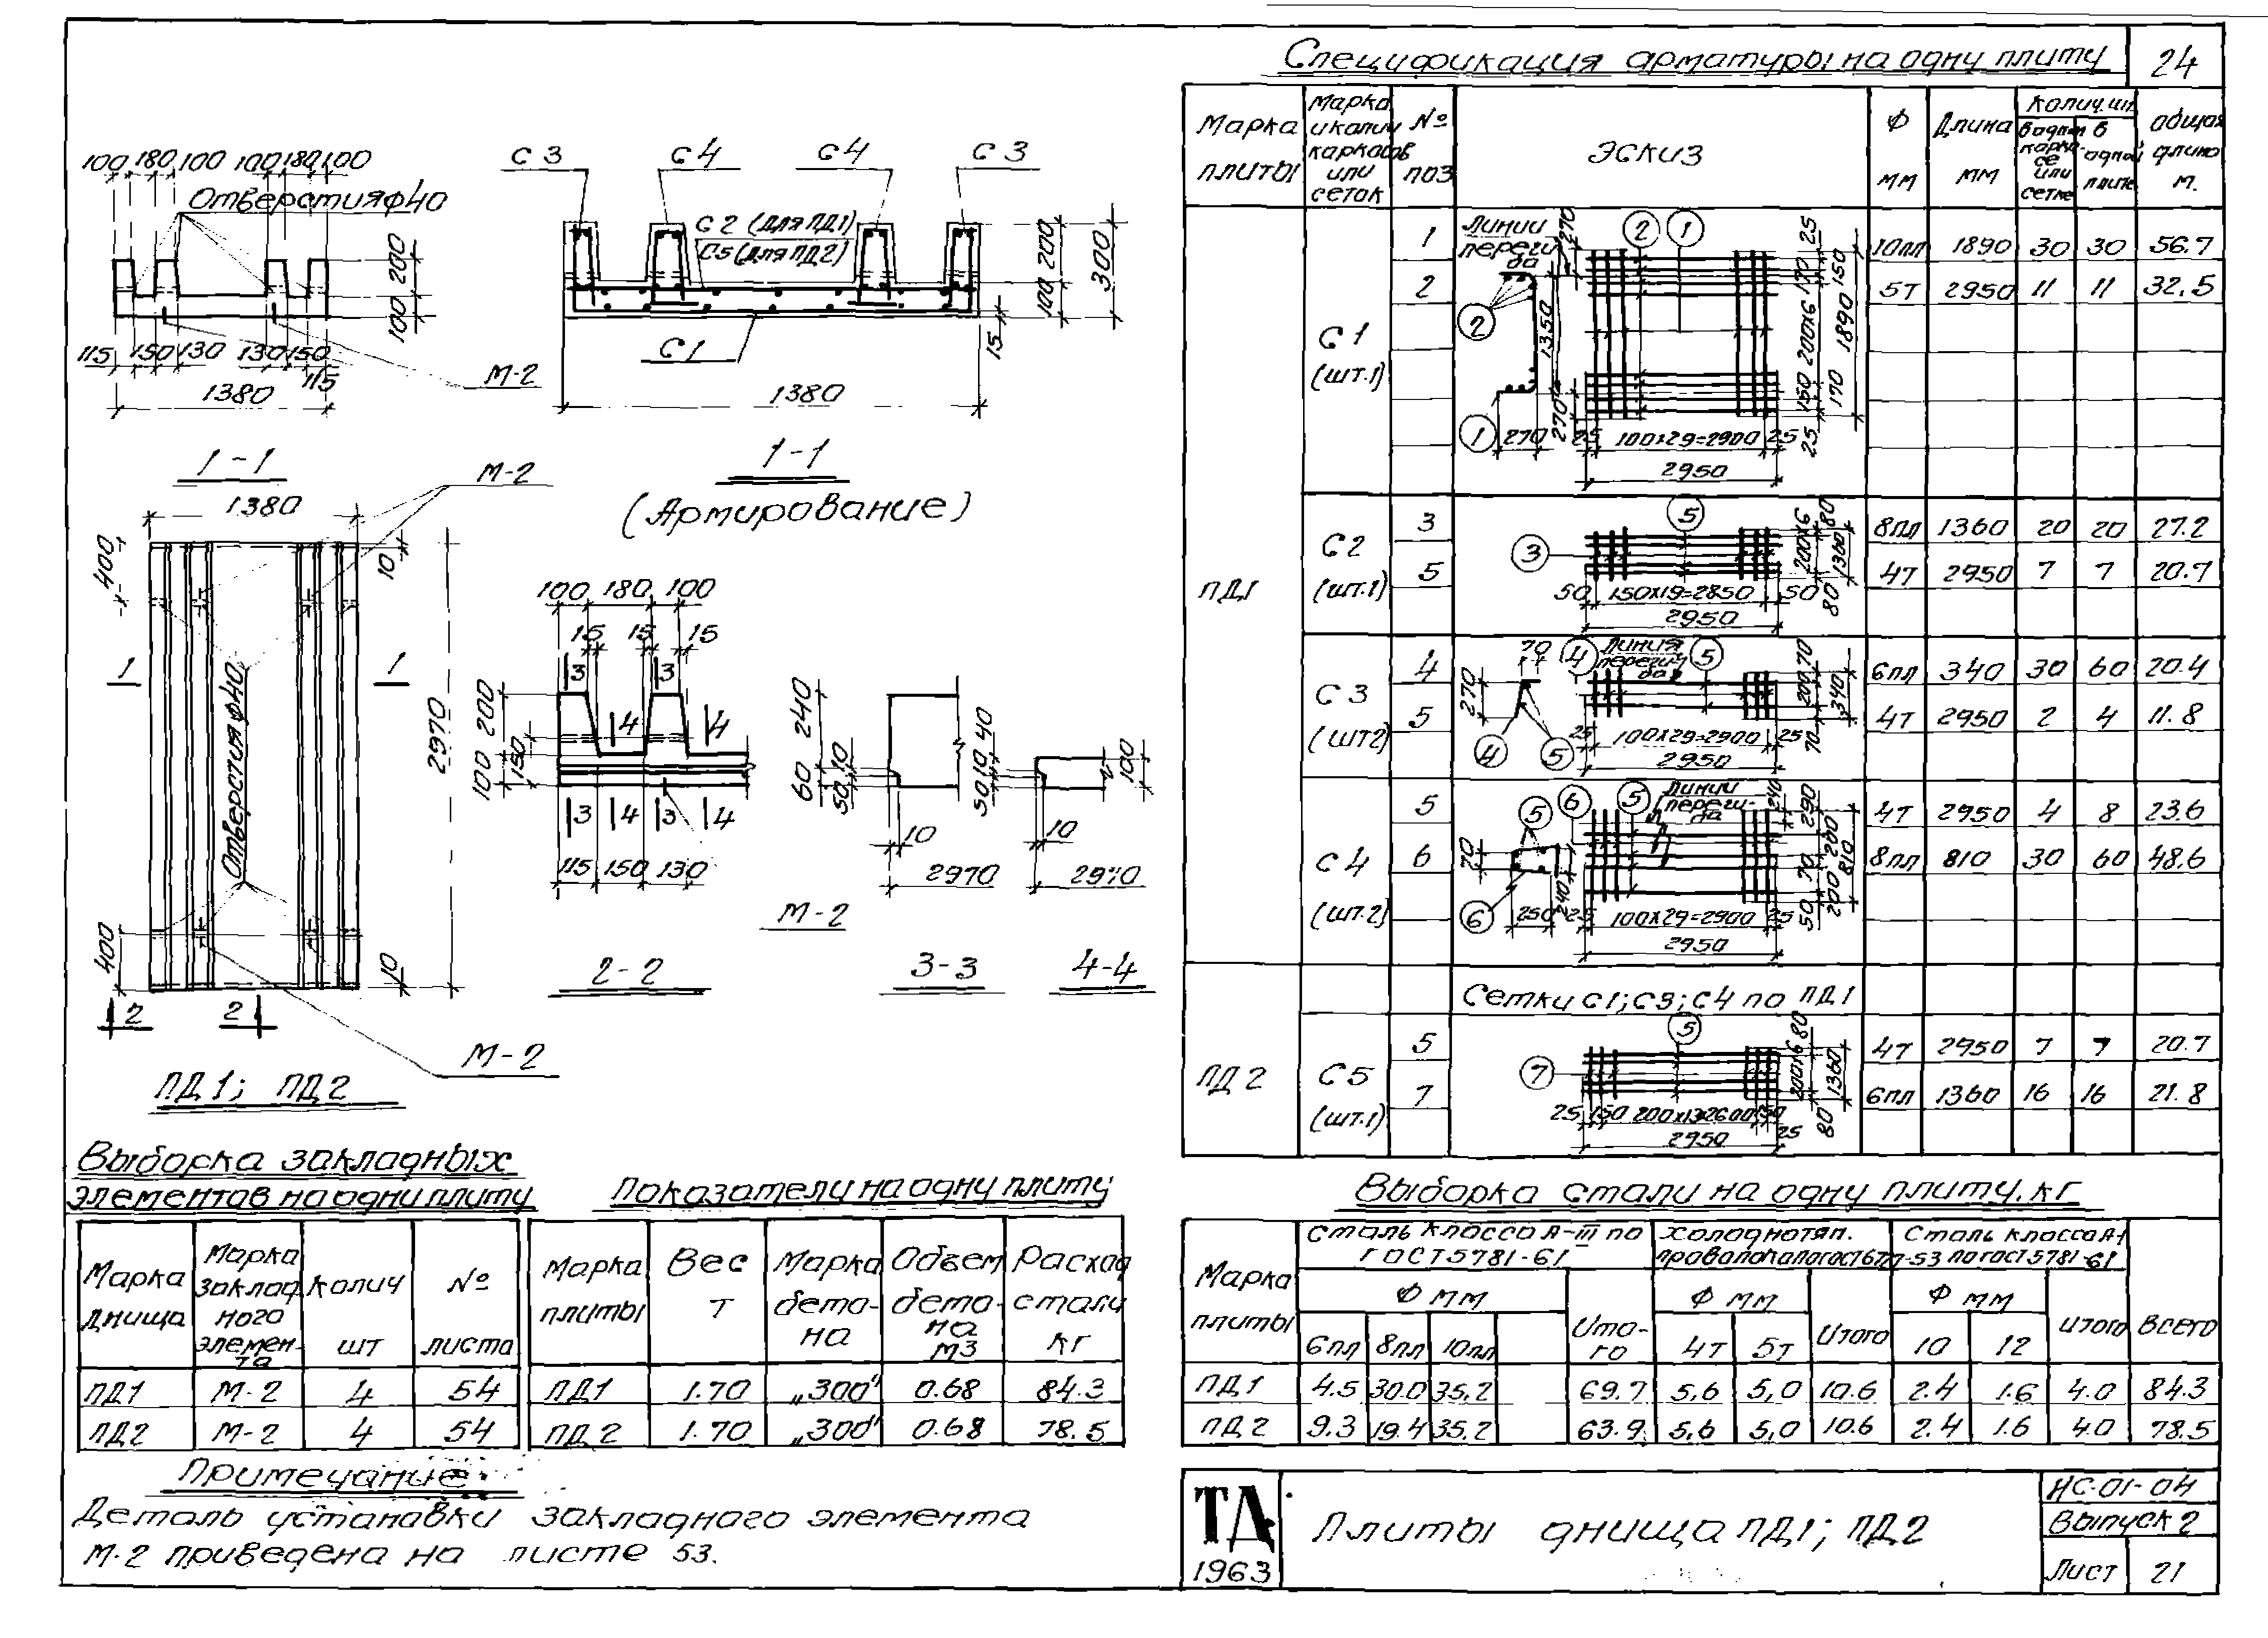 Спецификация арматуры на одну плиту
24
Марка плиты
Марка и колич каркасов или сеток
№ поз
Эскиз
Ф мм
Длина мм
Колич. шт.
в одном каркасе или сетке
в одной плите
общая длина м.
ПД1
С1 (шт.1)
1 10пл 1890 30 30 56.7
2 5т 2950 11 11 32.5
Линии перегиба
270 2 1 25
170 150
2
1350
200x6 1890
150 170
1 270 270 25 100x29=2900 25 25
2950
С2 (шт.1)
3 8пл 1360 20 20 27.2
5 4т 2950 7 7 20.7
5
3
200x6 80
1360
50 150x19=2850 50 80
2950
С3 (шт2)
4 6пл 340 30 60 20.4
5 4т 2950 2 4 11.8
70 4 Линия перегиба 5
270
200 70
340
4 5 25 100x29=2900 25 70
2950
С4 (шт.2)
5 4т 2950 4 8 23.6
6 8пл 810 30 60 48.6
5 6 5 Линии перегиба 240 290
70
200 810
70
6 250 240 25 100x29=2900 25 50 200
2950
ПД2
Сетки С1; С3; С4 по ПД1
С5 (шт.1)
5 4т 2950 7 7 20.7
7 6пл 1360 16 16 21.8
5
7
200x6 80
1360
25 150 200x13=2600 150 25 80
2950
100 180 100 100 180 100
Отверстия ф40
200
100
115 150 130 130 150 115
1380
М-2
1-1
С3 С4 С4 С3
С2 (для ПД1)
С5 (для ПД2)
С1
100 200
300
15
1380
1-1
(Армирование)
М-2
1380
400
10
1 1
Отверстия ф40
2970
400
10
2 2
М-2
ПД1; ПД2
100 180 100
15 15 15
3 3
200
4 4
100 150
3 4 3 4
115 150 130
М-2
2-2
240
60
50 10
10
2970
3-3
50 10 40
100
10
2970
4-4
Выборка закладных
элементов на одну плиту
Марка днища
Марка закладного элемента
Колич шт
№ листа
ПД1 М-2 4 54
ПД2 М-2 4 54
Показатели на одну плиту
Марка плиты
Вес т
Марка бетона
Объем бетона м3
Расход стали кг
ПД1 1.70 „300" 0.68 84.3
ПД2 1.70 „300" 0.68 78.5
Выборка стали на одну плиту, кг
Марка плиты
Сталь класса А-III по ГОСТ 5781-61
Холоднотян. проволока по ГОСТ 6727-53
Сталь класса А-I по ГОСТ 5781-61
Ф мм Ф мм Ф мм
6пл 8пл 10пл Итого 4т 5т Итого 10 12 Итого Всего
ПД1 4.5 30.0 35.2 69.7 5,6 5,0 10.6 2.4 1.6 4.0 84.3
ПД2 9.3 19.4 35.2 63.9 5,6 5,0 10.6 2.4 1.6 4.0 78.5
Примечание:
Деталь установки закладного элемента
М-2 приведена на листе 53.
ТД
1963
Плиты днища ПД1; ПД2
ИС-01-04
Выпуск 2
Лист 21